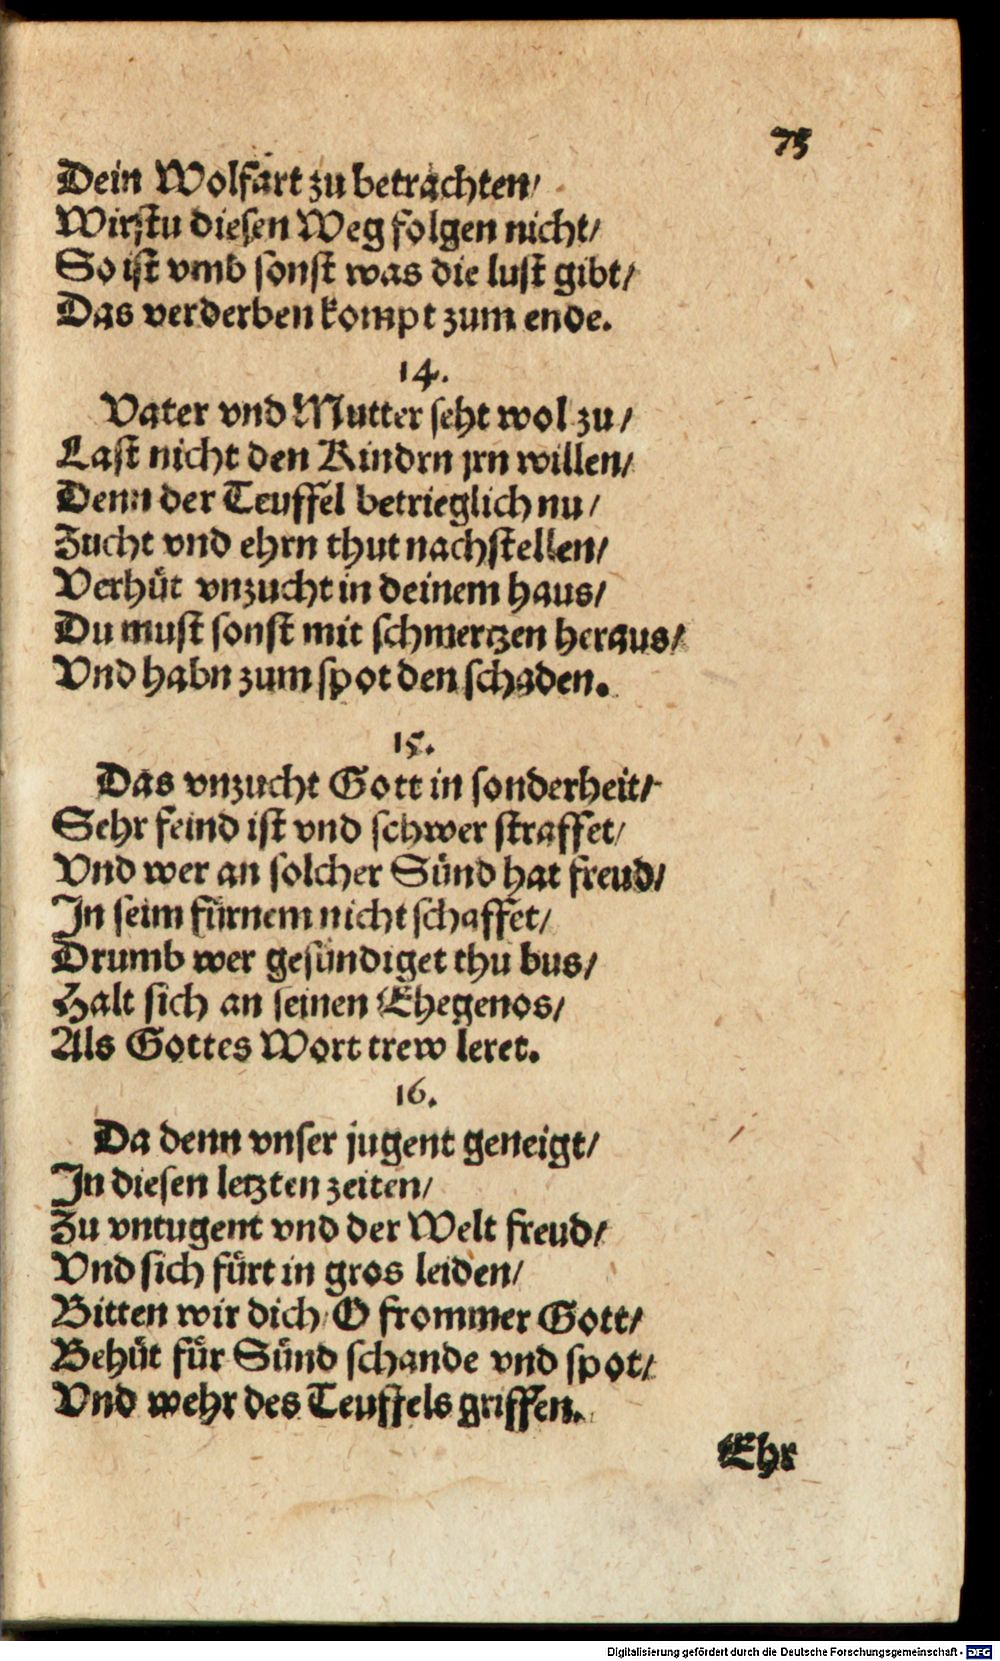 75
Dein Wolfart zu betrachten/
Wirstu diesen Weg folgen nicht/
So ist vmb sonst was die lust gibt/
Das verderben kompt zum ende.
14.
Vater vnd Mutter seht wol zu/
Last nicht den Kindrn jrn willen/
Denn der Teuffel betrieglich nu/
Zucht vnd ehrn thut nachstellen/
Verhüt vnzucht in deinem haus/
Du must sonst mit schmertzen heraus/
Vnd habn zum spot den schaden.
15.
Das vnzucht Gott in sonderheit/
Sehr feind ist vnd schwer straffet/
Vnd wer an solcher Sünd hat freud/
In seim fürnem nicht schaffet/
Drumb wer gesündiget thu bus/
Halt sich an seinen Ehegenos/
Als Gottes Wort trew leret.
16.
Da denn vnser jugent geneigt/
In diesen letzten zeiten/
Zu vntugent vnd der Welt freud/
Vnd sich fürt in gros leiden/
Bitten wir dich O frommer Gott/
Behüt für Sünd schande vnd spot/
Vnd wehr des Teuffels griffen.
Ehr
Digitalisierung gefördert durch die Deutsche Forschungsgemeinschaft - DFG